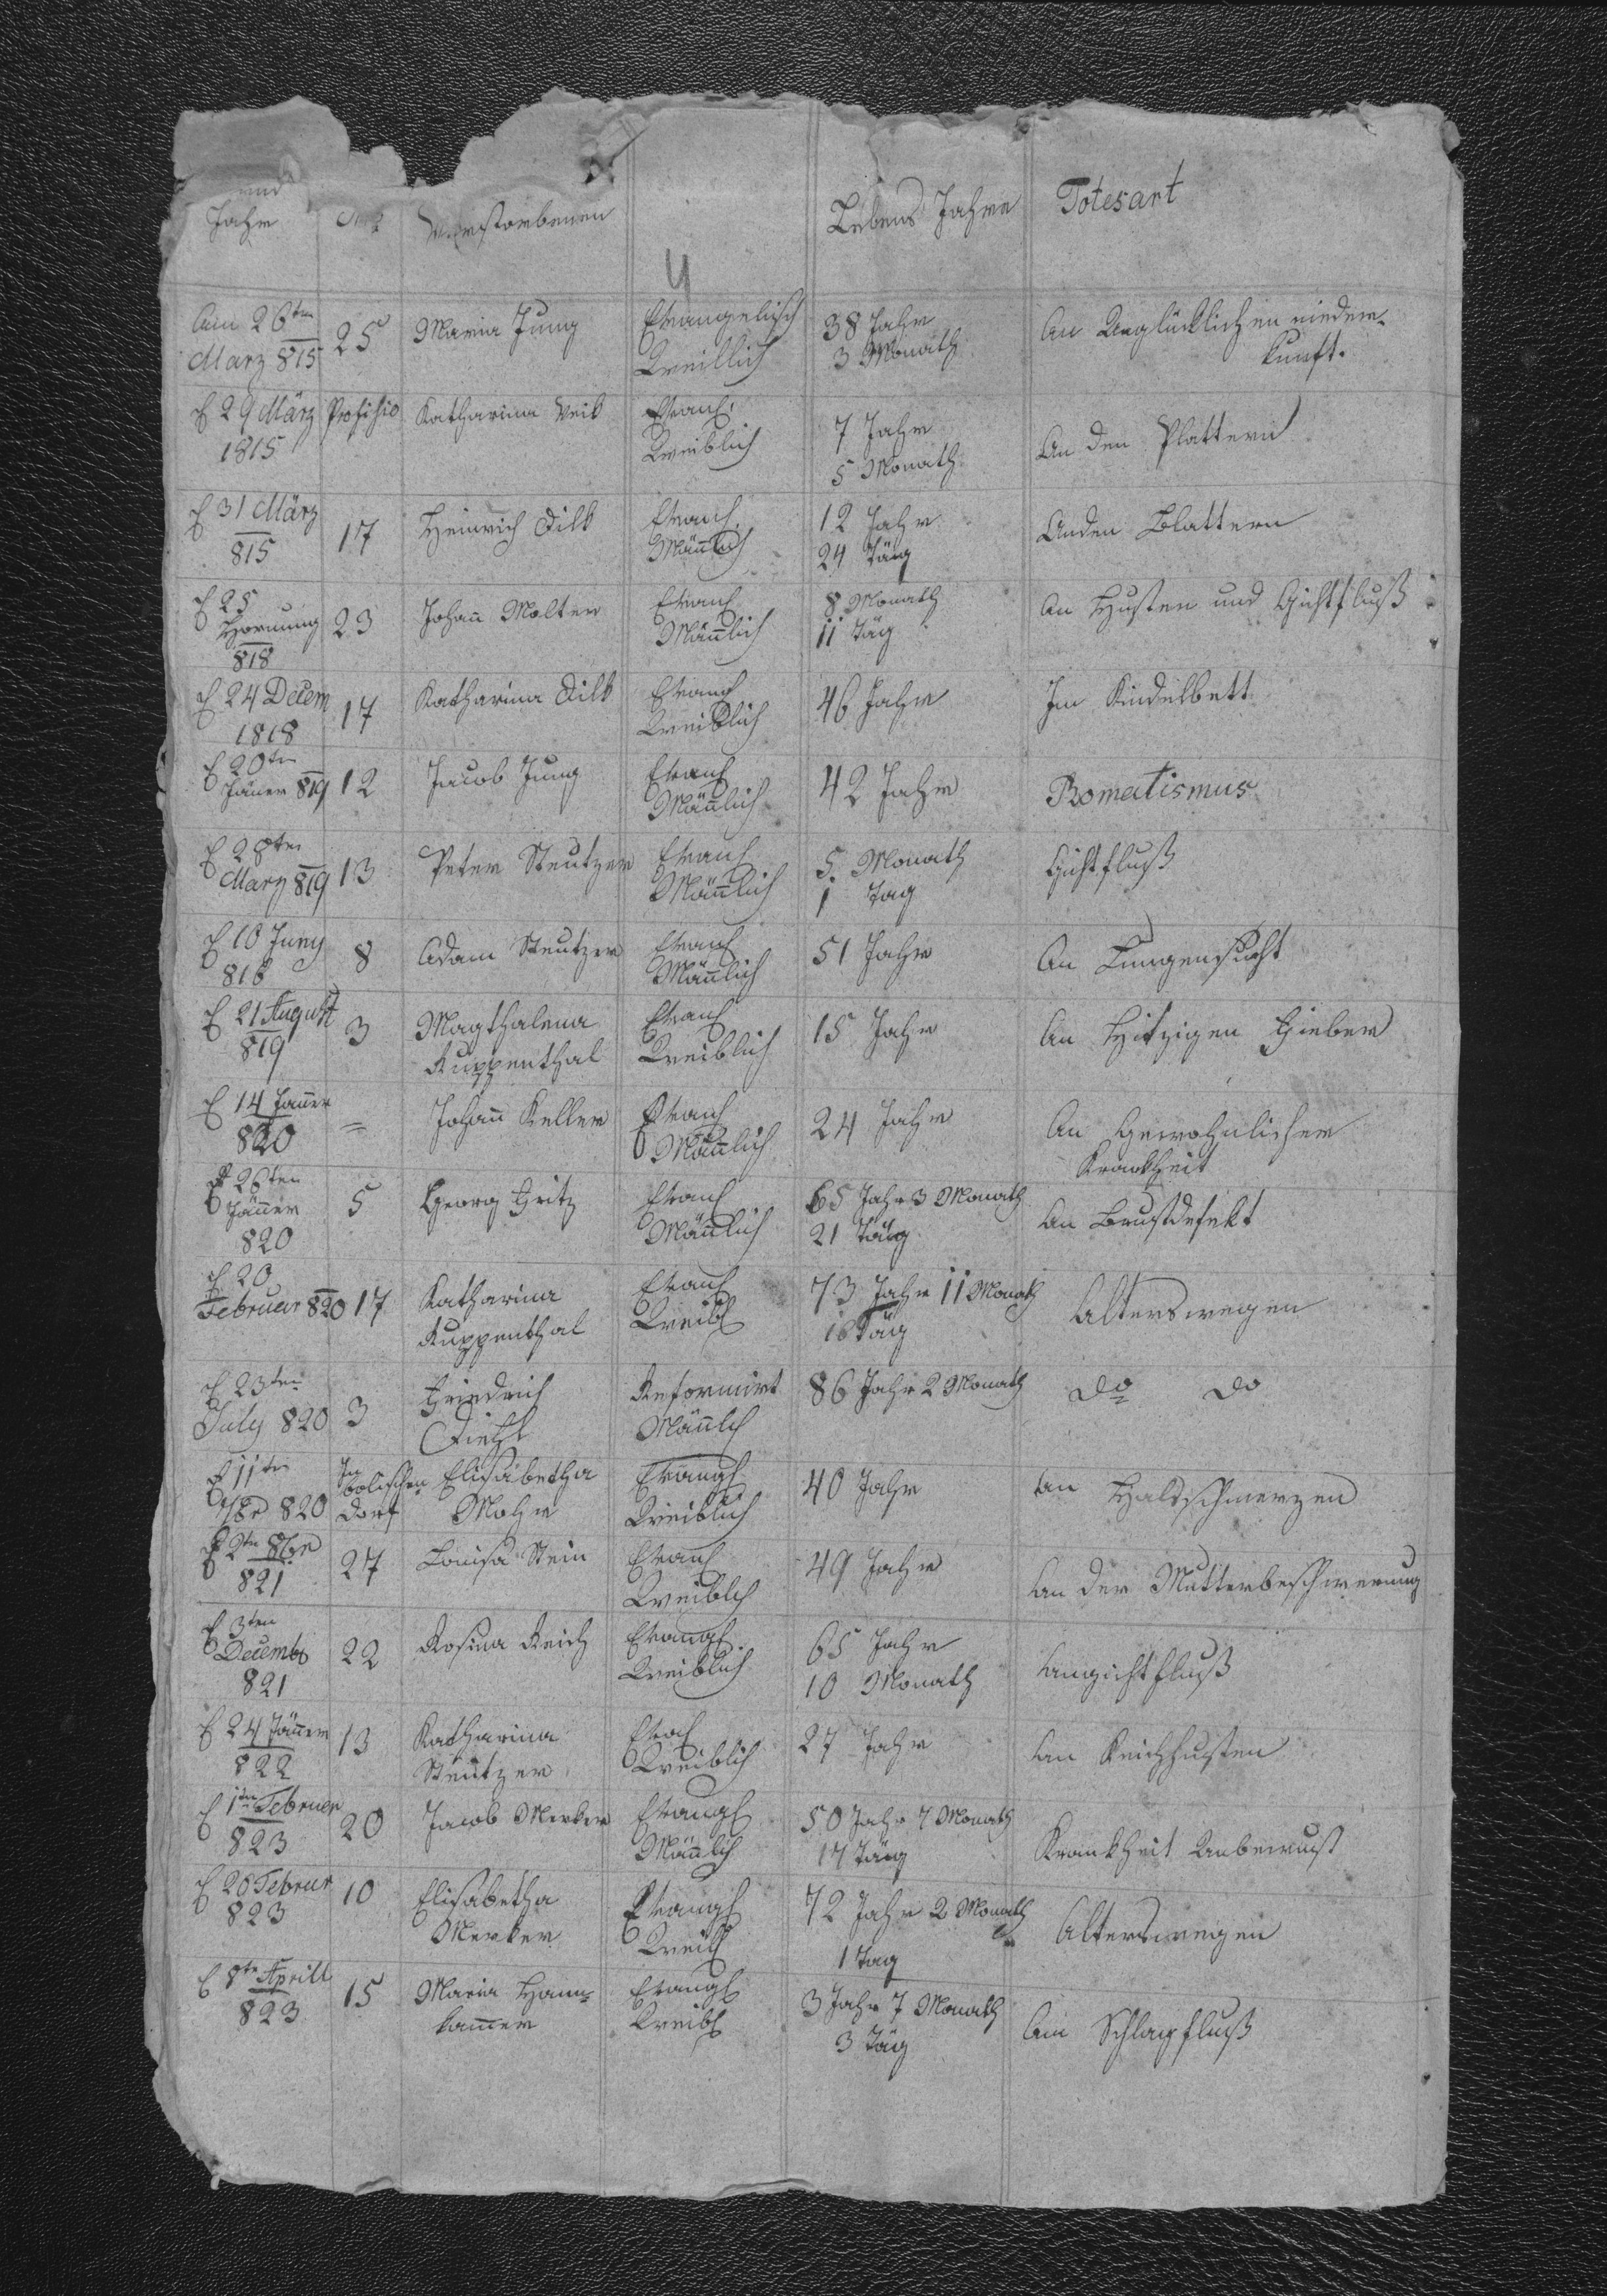 und
Jahr
Verstorbenen
Lebens Jahre
Totesart
Am 26ten
Marz 815
25
Maria Jung
Evangelisch
Weiblich
38 Jahr
3 Monath
An Unglücklichen nieder-
kunft.
d 29 März
1815
Katharina Veik
Evanl
Weiblich
7 Jahr
5 Monath
An den Plattern
d 31 März
815
17
Heinrich Dilk
Evanl
Mañlich
12 Jahr
24 Täg
An den Blattern
d 25
Hornung
818
23
Johañ Molter
Evanl
Mäñlich
8 Monath
11 Täg
An Husten und Gichtfluß
d 24 Decem
1818
17
Katharina Dilk
Evanl
Weiblich
46 Jahr
Im Kindelbett
d 20ten
Jäner 819
12
Jacob Jung
Evanl
Mäñlich
42 Jahr
Romatismus
d 28ten
Marz 819
13
Peter Steutzer
Evanl
Mäñlich
5. Monath
1 Tag
Gichtfluß
d 10 Juny
818
8
Adam Steutzer
Evanl
Mäñlich
51 Jahr
An Lungensucht
d 21 August
819
3
Magthalena
Kuppenthal
Evanl
Weiblich
15 Jahr
An Hitzigen Fieber
d 14 Jañer
820
=
Johañ Keller
Evanl
Mäñlich
24 Jahr
An Gewohnlicher
Krankheit
d 26ten
Jäñer
820
5
Georg Fritz
Evanl
Mäñlich
65 Jahr 3 Monath
21 Täg
An Brustdefekt
d 20
Februar 820
17
Katharina
Kuppenthal
Evanl
Weibl
73 Jahr 11 Monath
18 Täg
Alterswegen
d 23ten
July 820
3
Friedrich
Diehl
Reformirt
Mäñlch
86 Jahr 2 Monath
do do
d 11ten
7br 820
In
bolischen
Dorf
Elisabetha
Mohr
Evangl
Weiblich
40 Jahr
An Halsschmerzen
d 2ten 8br
821
27
Louisa Stein
Evanl
Weiblch
49 Jahr
An der Mutterbeschwerung
d 3ten
Decemb
821
22
Rosina Reich
Evangl
Weiblich
65 Jahr
10 Monath
An gichtfluß
d 24 Jäñer
822
13
Katharina
Steutzer
Evnl
Weiblich
27 Jahr
An Keichhusten
d 1ten Februer
823
20
Jacob Merker
Evangl
Mäñlich
50 Jahr 7 Monath
17 Täg
Krankheit Unbewust
d 20 Februr
823
10
Elisabetha
Merker
Evangl
Weibl
72 Jahr 2 Monath
1 Tag
Alterswegen
d 8ten Aprill
823
15
Maria Ham-
kamer
Evangl
Weibl
3 Jahr 7 Monath
3 Täg
Am Schlagfluß